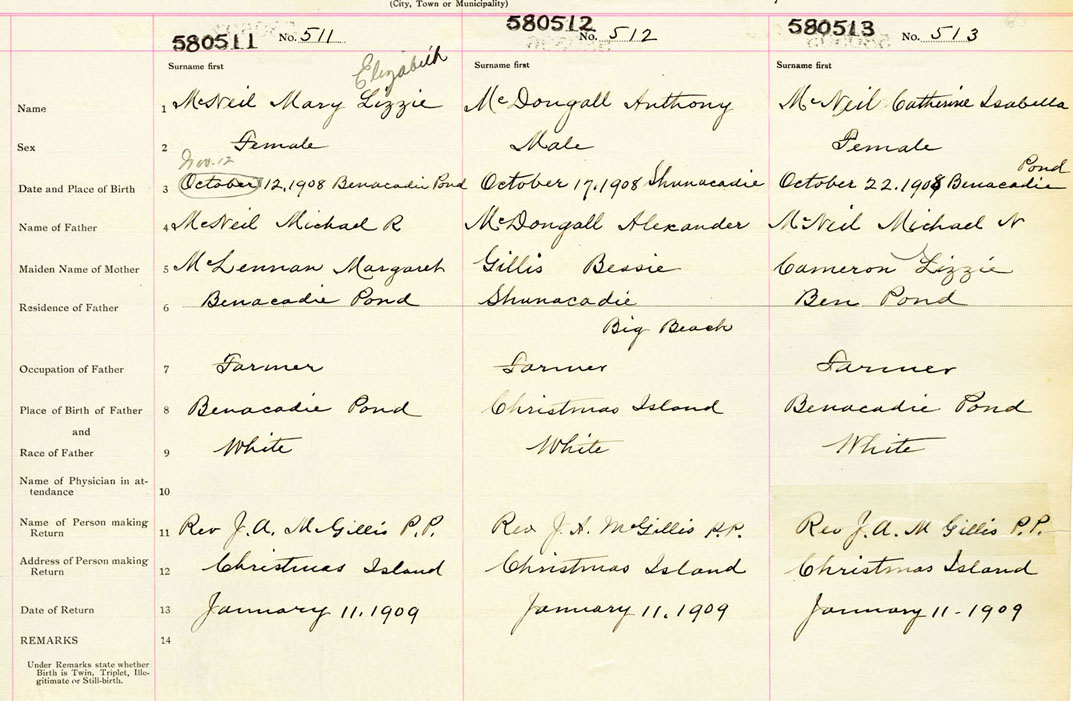 (City, Town or Municipality)
580511 No. 511 580512 No. 512 580513 No. 513
Surname first Elizabeth Surname first Surname first
Name 1 McNeil Mary Lizzie McDougall Anthony McNeil Catherine Isabella
Sex 2 Female Male Female
Nov. 12 Pond
Date and Place of Birth 3 October 12, 1908 Benacadie Pond October 17, 1908 Shunacadie October 22. 1908 Benacadie
Name of Father 4 McNeil Michael R McDougall Alexander McNeil Michael N
Maiden Name of Mother 5 McLennan Margaret Gillis Bessie Cameron Lizzie
Residence of Father 6 Benacadie Pond Shunacadie Ben Pond
Big Beach
Occupation of Father 7 Farmer Farmer Farmer
Place of Birth of Father 8 Benacadie Pond Christmas Island Benacadie Pond
and
Race of Father 9 White White White
Name of Physician in at-
tendance 10
Name of Person making
Return 11 Rev J. A. McGillis P.P. Rev J. A. McGillis P.P. Rev J. A. M Gillis P.P.
Address of Person making
Return 12 Christmas Island Christmas Island Christmas Island
Date of Return 13 January 11, 1909 January 11, 1909 January 11 - 1909
REMARKS 14
Under Remarks state whether
Birth is Twin, Triplet, Ille-
gitimate or Still-birth.